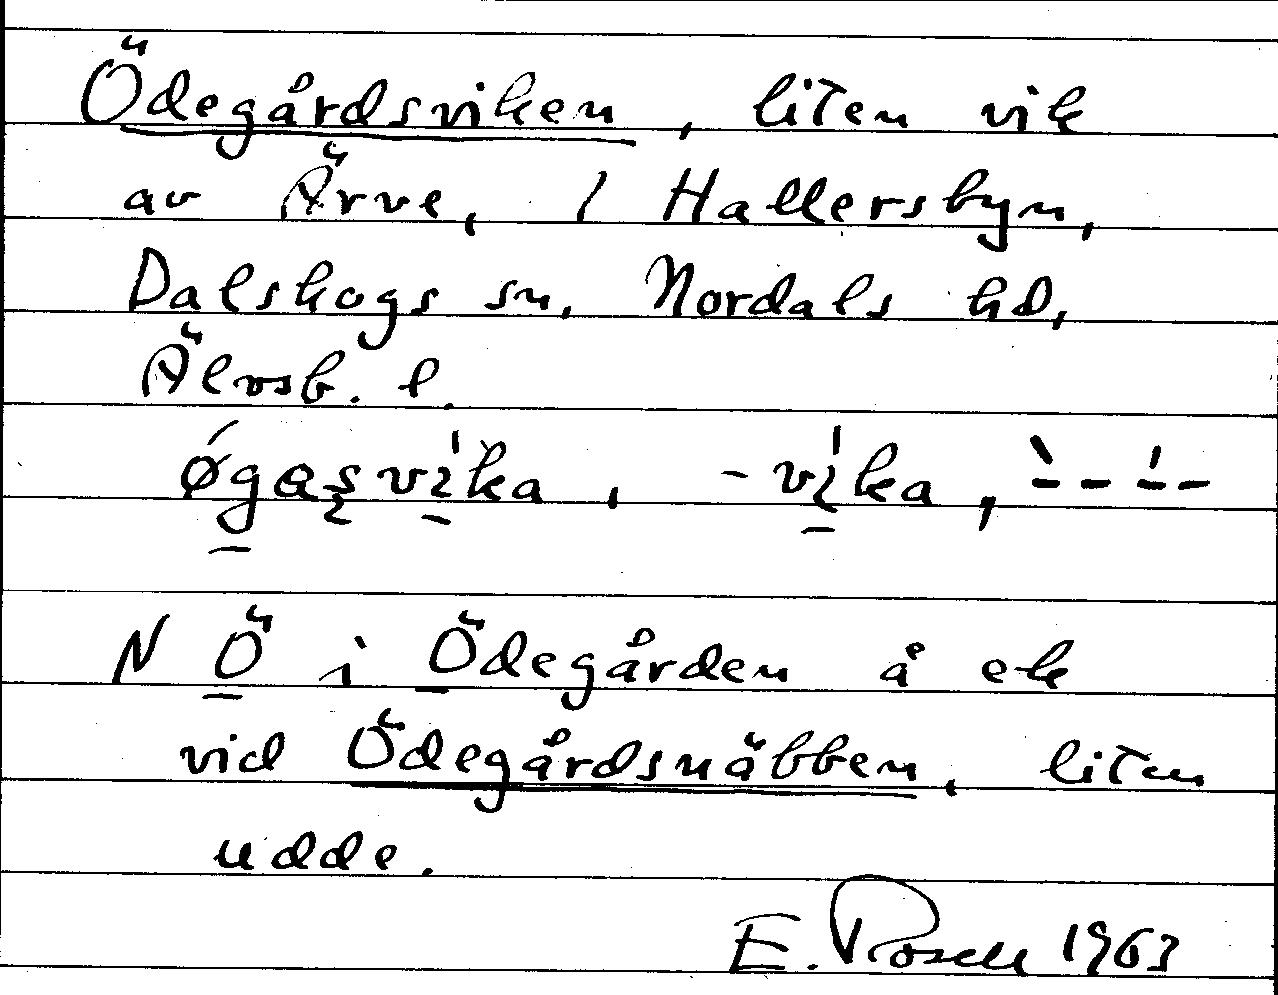 Ödegårdsviken, liten vik
av Ärve, / Hallersbyn,
Dalskogs sn, Nordals hd,
Älvsb. l.
ǿgas̨vi̍ka, -vi̍ka, `----
N Ö i Ödegården å ek
vid Ödegårdsnäbben, liten
udde.
E. Rosell 1963